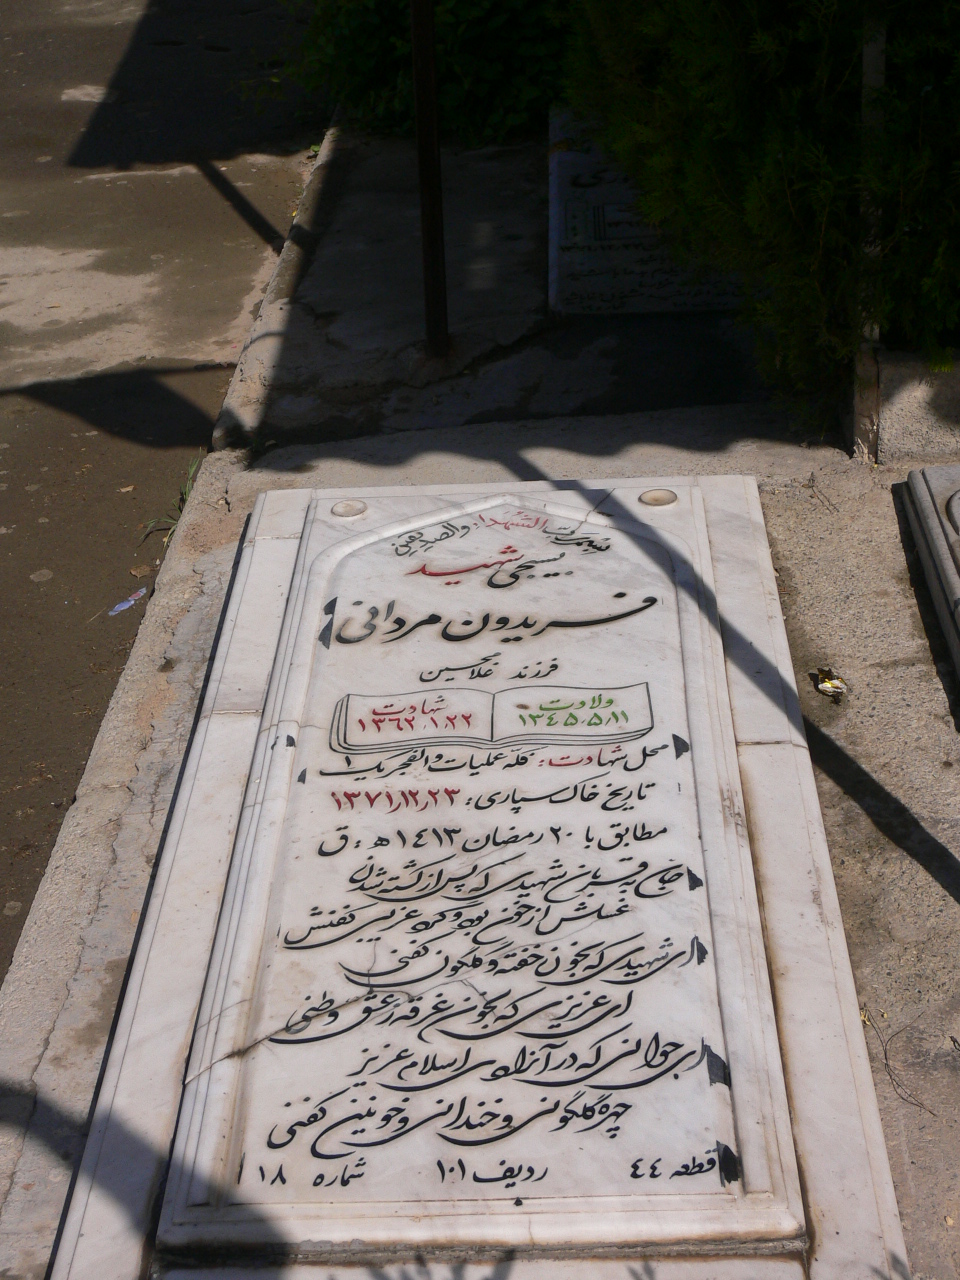 بسم رب الشهداء والصدیقین
بسیجی شهید
فریدون مردانی
فرزند غلامحسین
ولادت شهادت
۱۳٤۵٫۵٫۱۱ ۱۳٦۲٫۱٫۲۲
محل شهادت: فکه عملیات والفجر یک ۱
تاریخ خاک سپاری: ۱۳۷۱٫۱۲٫۲۳
مطابق با ۲۰ رمضان ۱٤۱۳ ه‍ . ق
جان به قربان شهیدی که پس از کشته شدن
غسلش از خون بود و گرد غریبی کفنش
ای شهیدی که بخون خفته و گلگون کفنی
ای عزیزی که بخون غرقه ز عشق وطنی
ای جوانی که در آزادی اسلام عزیز
چهره گلگونی و خندانی و خونین کفنی
قطعه ٤٤ ردیف ۱۰۱ شماره ۱۸